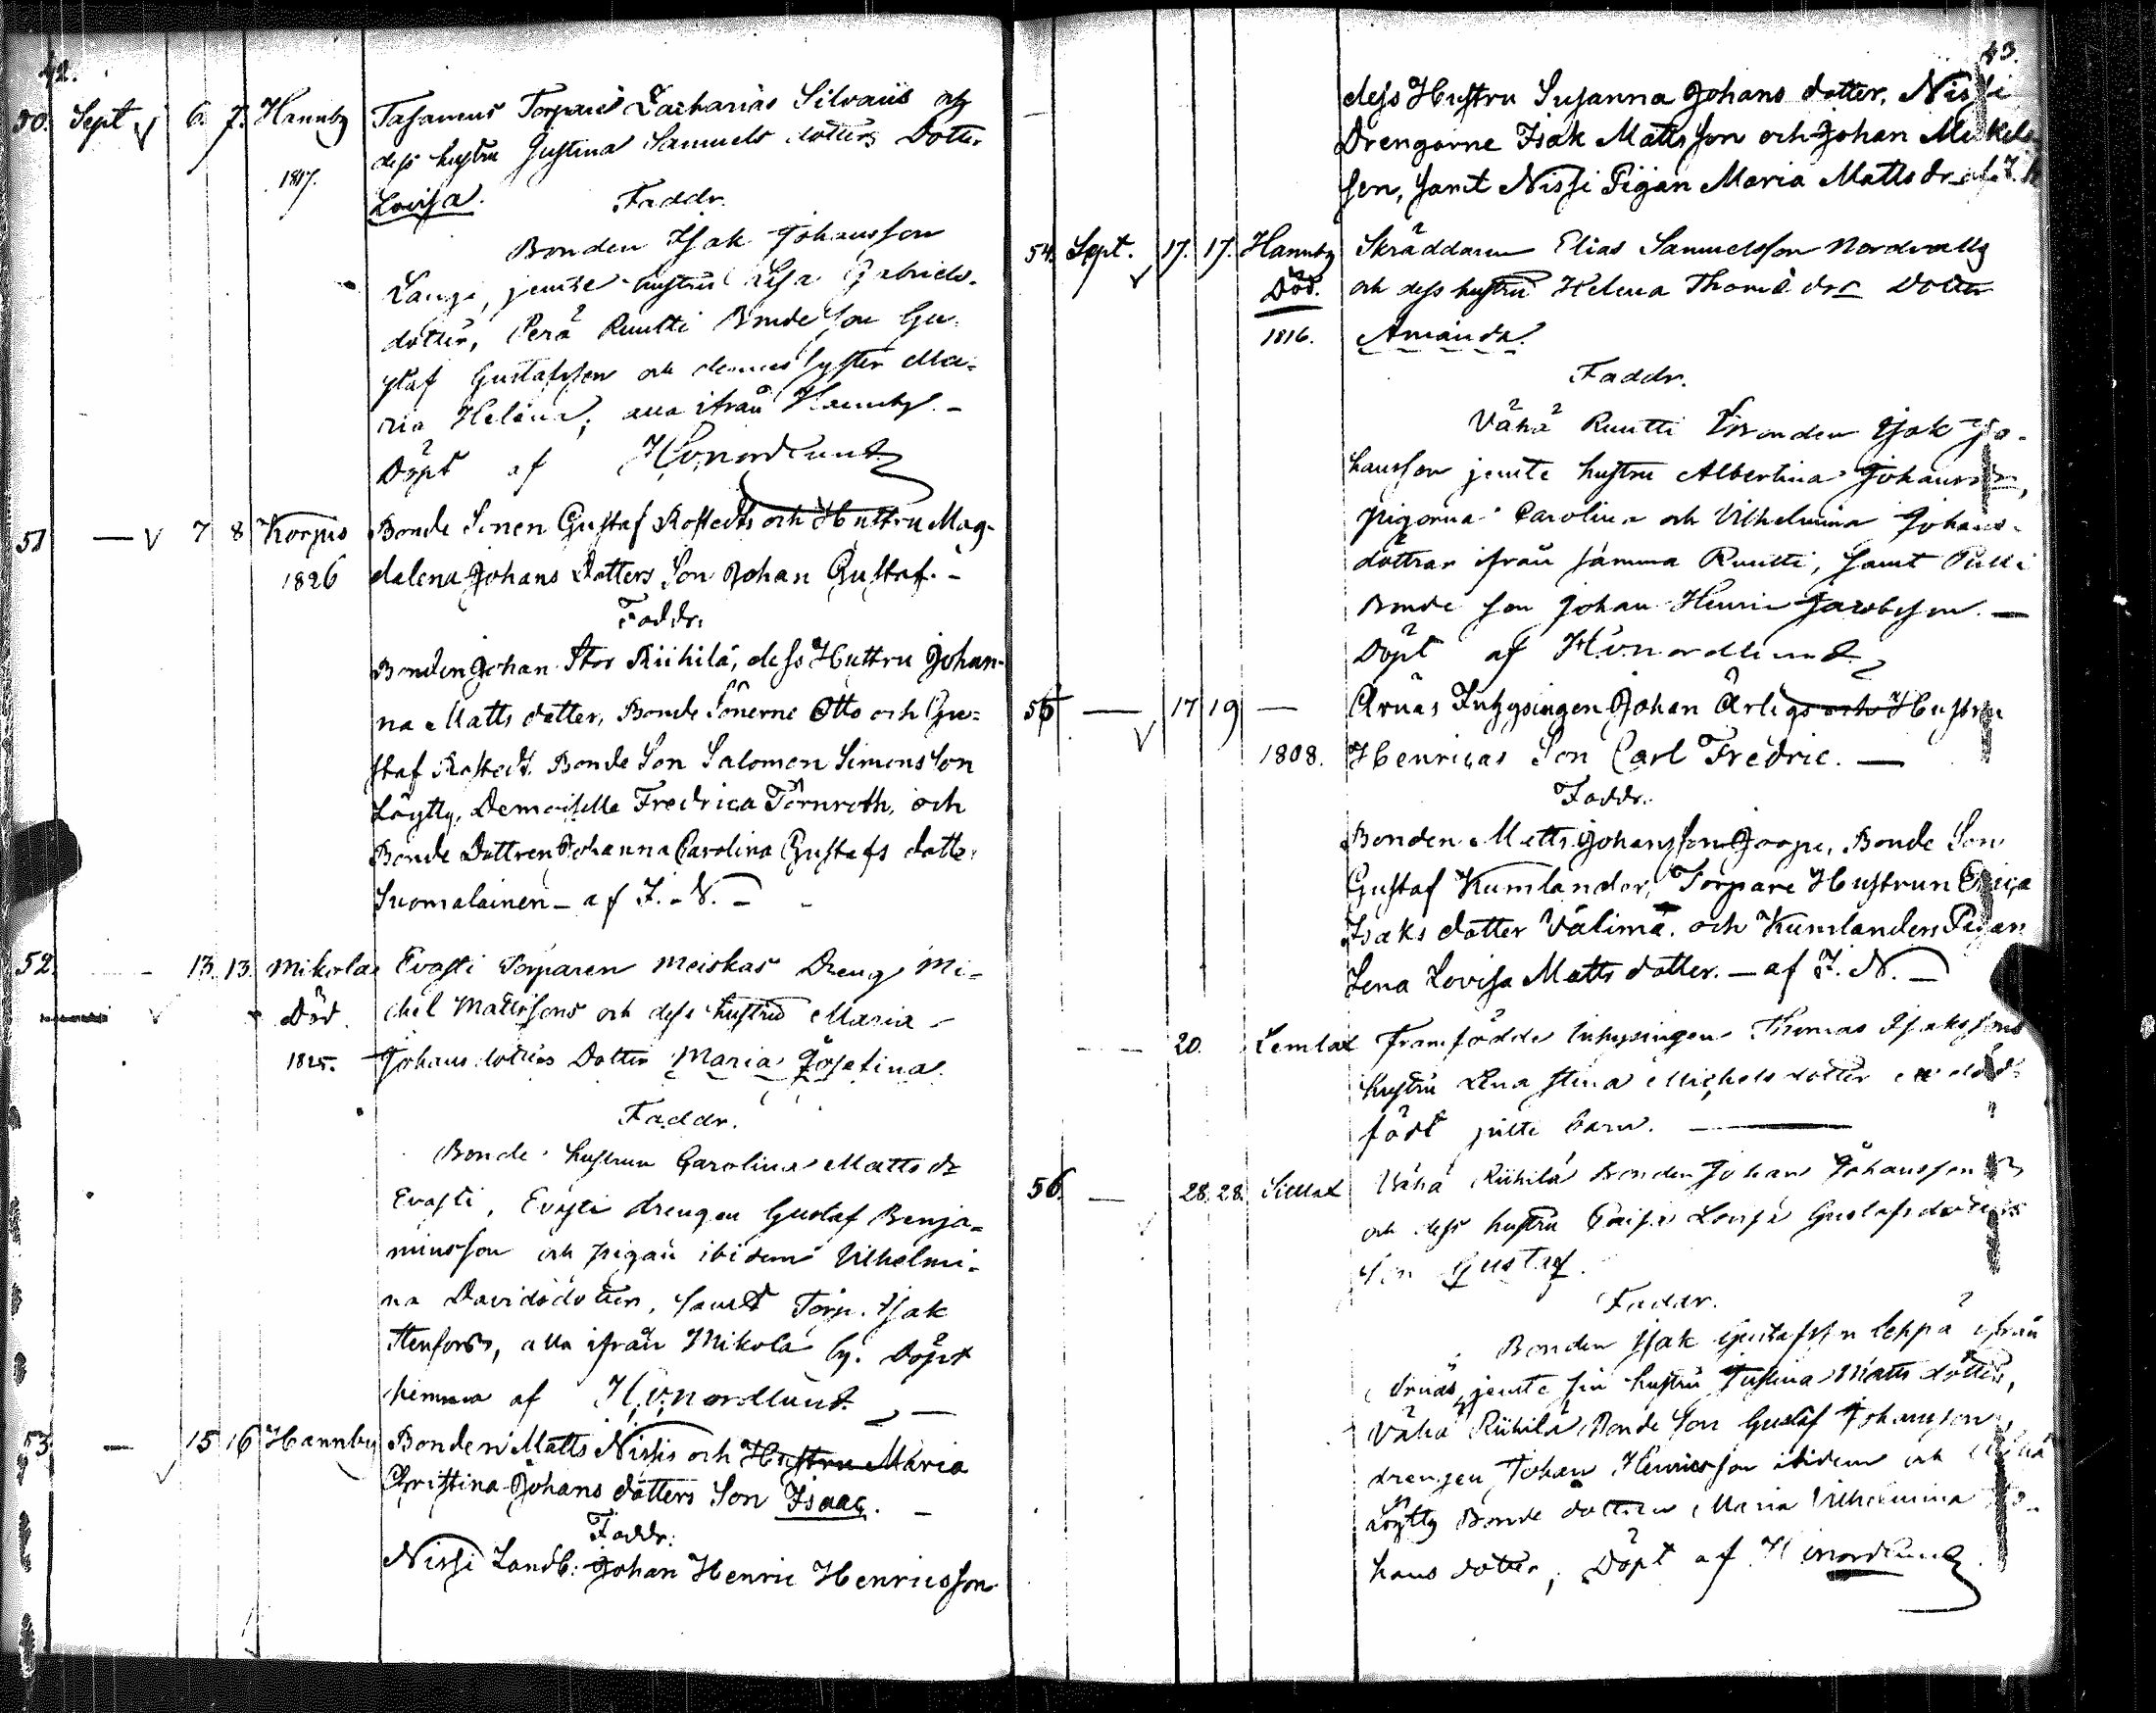 42.
50. Sept 6. 7. Hannby Tasamus Torpare Zacharias Silvaüs och
dess hustru Justina Samuels dotters Dotter
1817.
Lovisa.
Faddr.
Bonden Isak Johansson
Lauga, jemte hustru Lisa Gabriels-
dotter, Perä Ruutti Bonde son Gu-
staf Gustafsson och dennes syster Ma-
ria Helena; alla ifrån Hannby. –
Döpt af H.v.nordlund
51 — 7 8 Korpis Bonde Sonen Gustaf Rostedts och Hustru Mag-
1826 dalena Johans Dotters Son Johan Gustaf. –
Faddr.
Bonden Johan Stor Riihilä, dess Hustru Johan-
na Matts dotter, Bonde Sönerne Otto och Gu=
staf Rostedt. Bonde Son Salomon Simons Son
Löytty, Demoiselle Fredrica Törnroth, och
Bonde Dottren Johanna Carolina Gustafs dotter
Suomalainen – af I. N. –
52. — 13. 13. Mikola Evasti Torparen Meiskas Dreng Mi-
Död. chel Mattssons och dess hustru Maria
1825. Johans dotters Dotter Maria Josefina.
Faddr.
Bonde hustrun Carolina Matts dr
Evasti, Evasti drengen Gustaf Benja=
minsson och pigan ibidem Vilhelmi-
na Davidsdotter, samt Torp. Isak
Stenfors, alla ifrån Mikola by. Döpt
hemma af H.v.nordlund. —
53 — 15 16 Hannby Bonden Matts Nissis och Hustru Maria
Christina Johans dotters Son Isaac. –
Faddr:
Nissi Landb: Johan Henric Henricsson
43.
dess Hustru Susanna Johans dotter, Nissi
Drengarne Isak Matts son och Johan Mikels
son, samt Nissi Pigan Maria Matts dr af I. N
54. Sept. 17. 17. Hannby Skräddaren Elias Samuelsson Nordvalls
Död. och dess hustru Helena Thomæ drs Dotter
1816. Amanda.
Faddr.
Vähä Ruutti Bonden Isak Jo-
hansson jemte hustru Albertina Johansdr,
pigorna Carolina och Vilhelmina Johans-
döttrar ifrån samma Ruutti, samt Pulli
Bonde son Johan Henric Jacobsson. —
Döpt af H.v.nordlund
55 — 17 19 — Årnäs Inhysingen Johan Ärligs och Hustru
1808. Henricas Son Carl Fredric. —
Faddr.
Bonden Matts Johansson Joope, Bonde Son
Gustaf Kumlander, Torpare Hustrun Erica
Isaks dotter Välimä. och Kumlanders Pigan
Lena Lovisa Matts dotter. — af I. N. —
20. Lemlax Framfödde Inhysingen Thomas Isakssons
hustru Lena Stina Michels dotter ett död-
födt piltebarn. —
56. — 28. 28. Lemlax Vähä Riihilä Bonden Johan Johansson
och dess hustru Caisa Lovisa Gustafs dotters
Son Gustaf.
Faddr.
Bonden Isak Gustafsson Leppä ifrån
Årnäs, jemte sin hustru Justina Matts dotter,
Vähä Riihilä Bonde Son Gustaf Johansson,
drengen Johan Henricsson ibidem och
Löytty Bonde dottren Maria Vilhelmina Jo-
hans dotter; Döpt af H.v.nordlund.